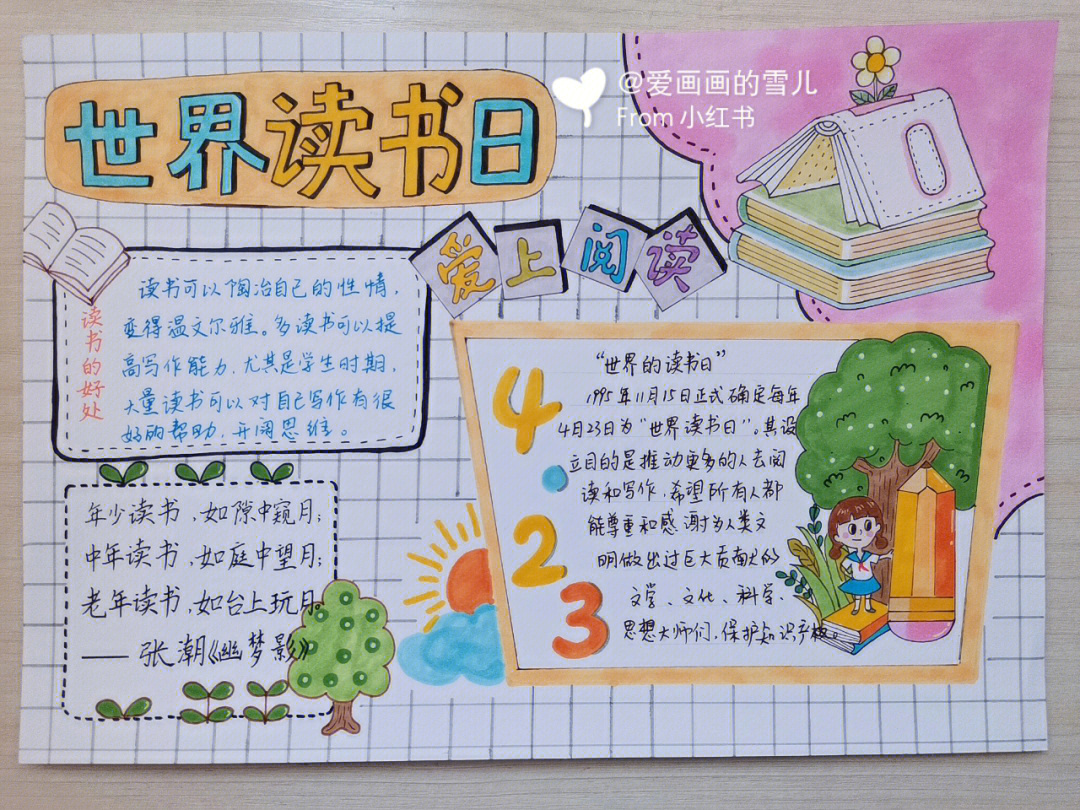 世界读书日
@爱画画的雪儿
From 小红书
爱上阅读
读书的好处
读书可以陶冶自己的性情，
变得温文尔雅。多读书可以提
高写作能力，尤其是学生时期，
大量读书可以对自己写作有很
好的帮助，开阔思维。
年少读书，如隙中窥月；
中年读书，如庭中望月；
老年读书，如台上玩月。
——张潮《幽梦影》
4.23
“世界的读书日”
1995年11月15日正式确定每年
4月23日为“世界读书日”。其设
立目的是推动更多的人去阅
读和写作，希望所有人都
能尊重和感谢为人类文
明做出过巨大贡献的
文学、文化、科学、
思想大师们，保护知识产权。